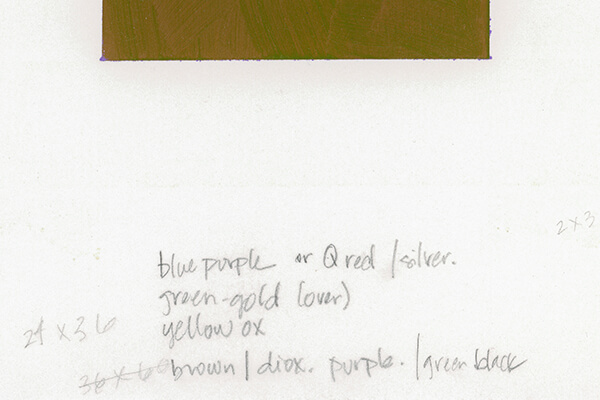 2 x 3
blue purple or Q red / silver.
green-gold (over)
24 x 36 yellow ox
36 x 6 brown / diox. purple. / green black